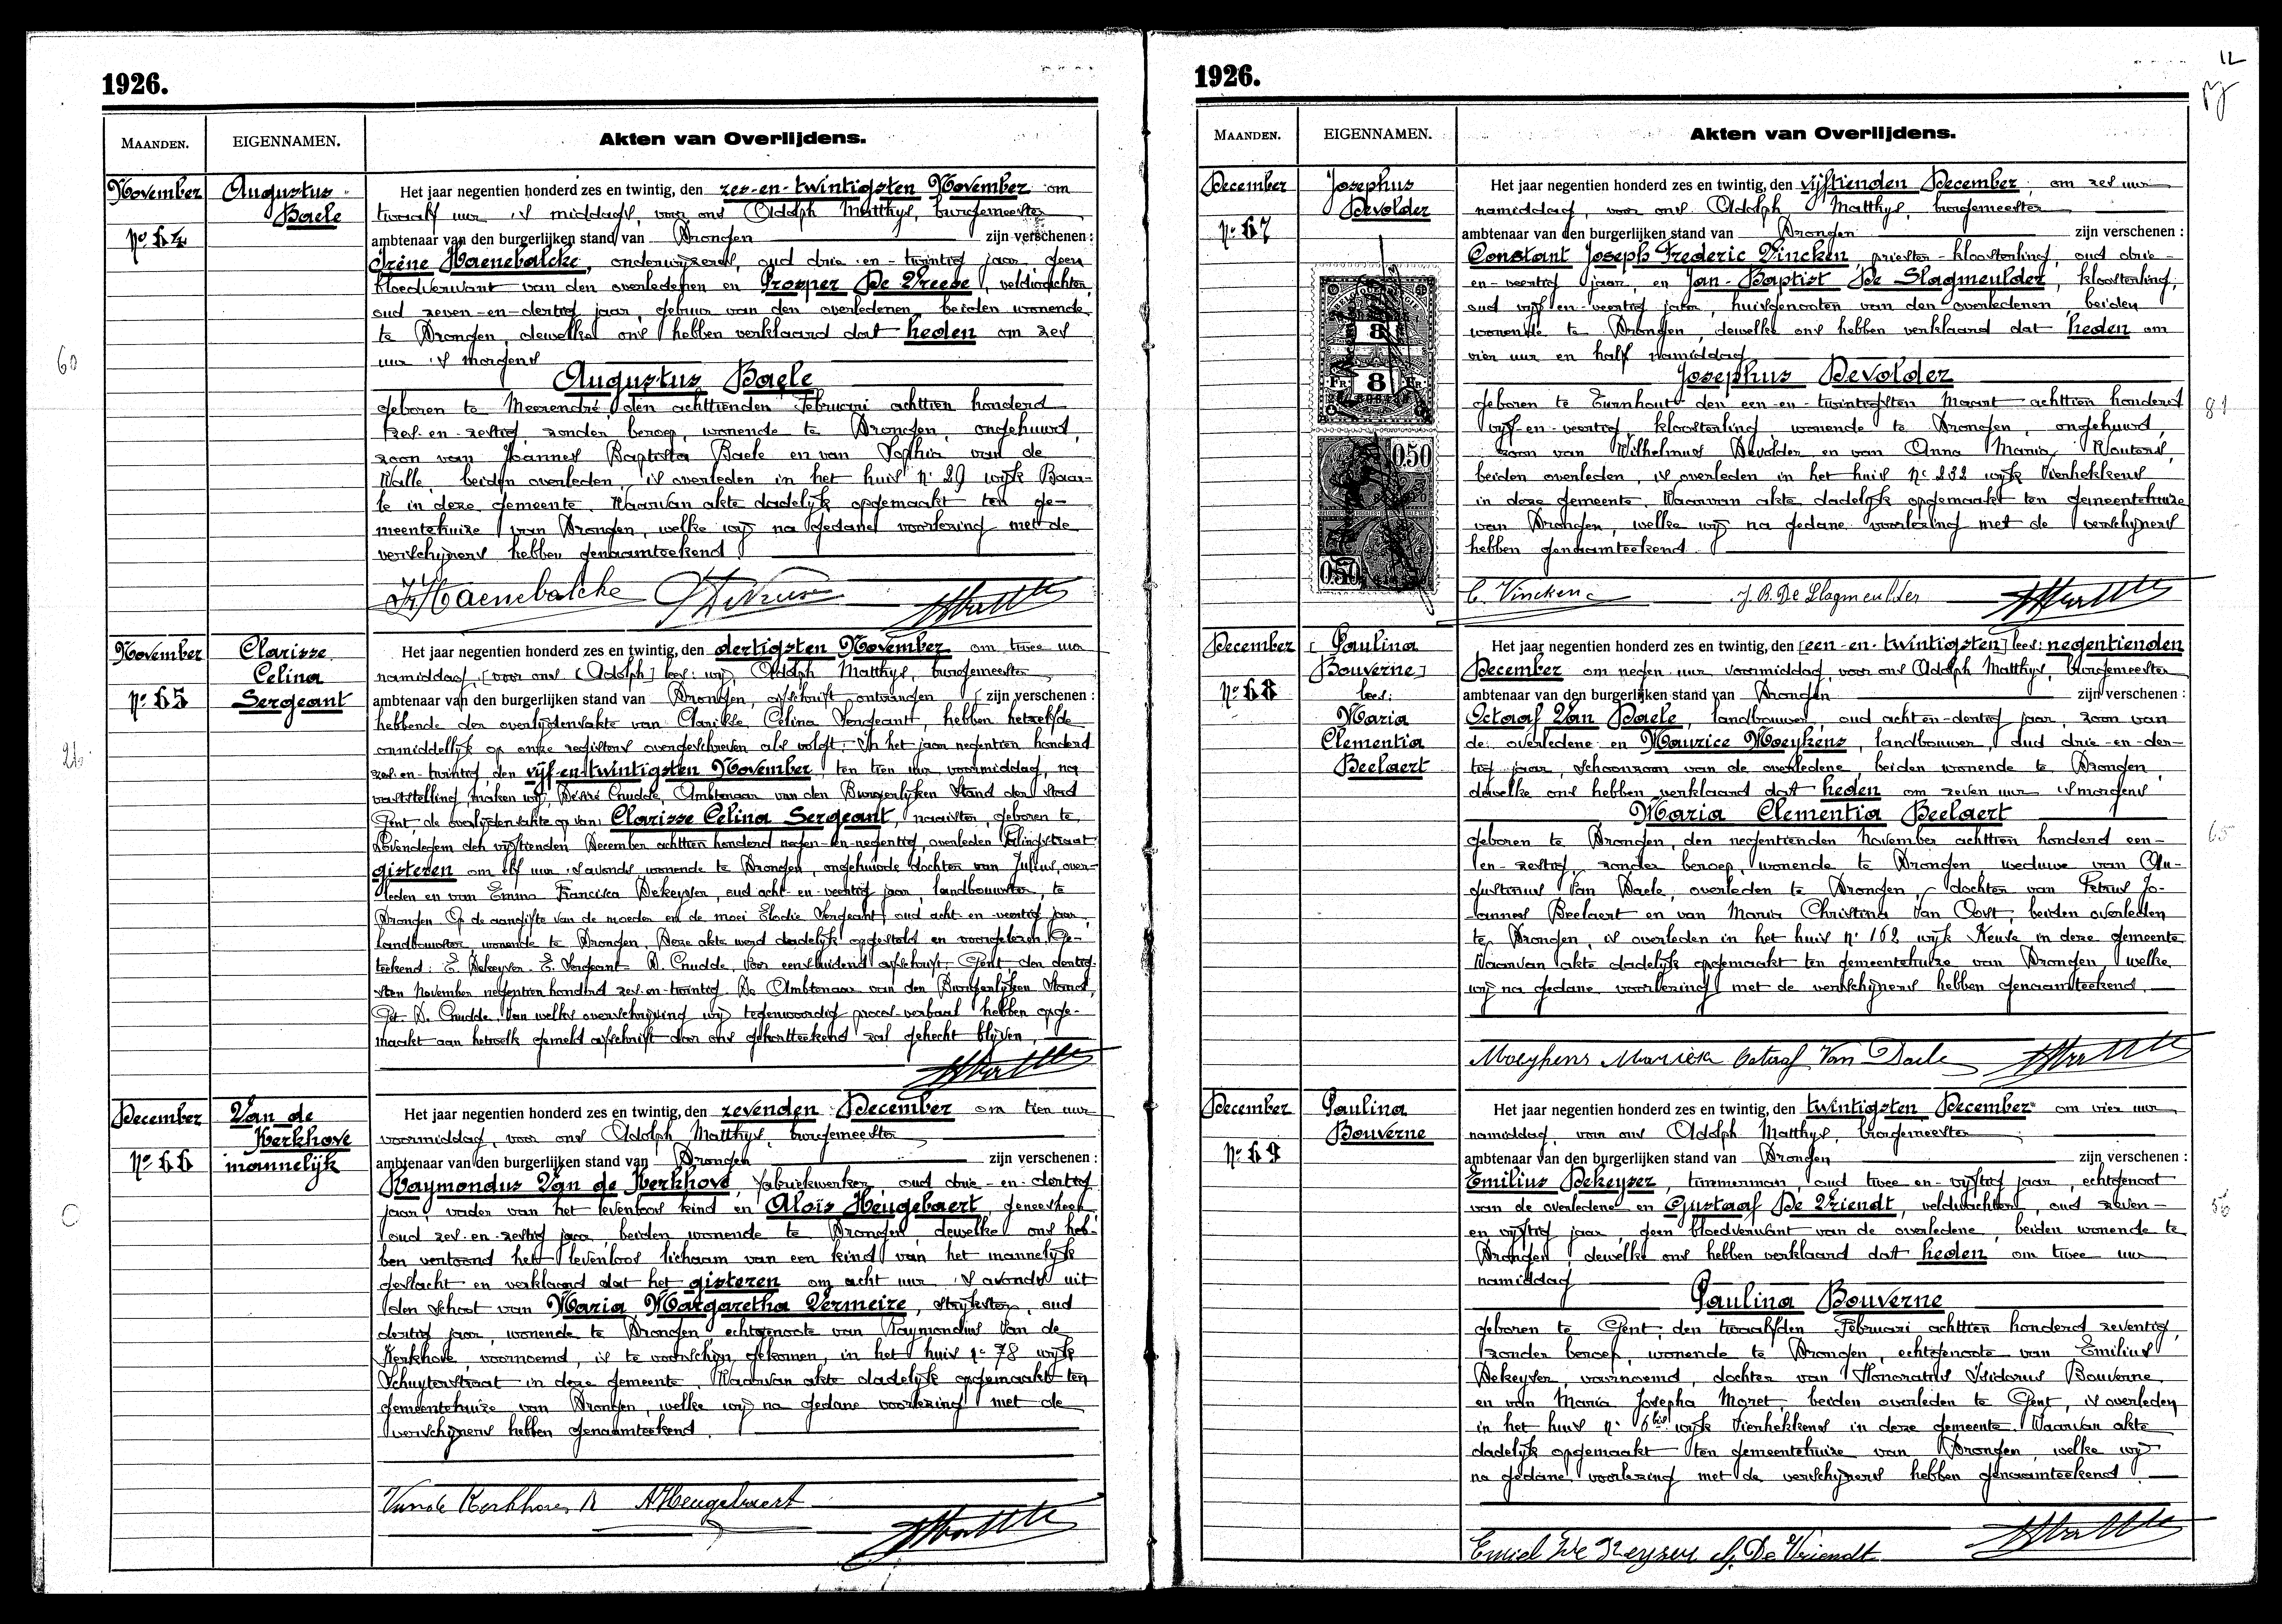 1926.
MAANDEN.
EIGENNAMEN.
Akten van Overlijdens.
November
Nº 64
Augustus
Baele
Het jaar negentien honderd zes en twintig, den zes-en-twintigsten November om
twaalf uur 's middags, voor ons Adolph Matthys, burgemeester
ambtenaar van den burgerlijken stand van Drongen zijn verschenen :
Irène Haenebalcke, onderwijzeres, oud drie-en-twintig jaar geen
bloedverwant van den overledenen en Prosper De Vreese, veldwachter,
oud zeven-en-dertig jaar, gebuur van den overledenen, beiden wonende
te Drongen, dewelke ons hebben verklaard dat heden om zes
uur 's morgens
Augustus Baele
geboren te Meerendré, den achttienden Februari achttien honderd
zes-en-zestig, zonder beroep, wonende te Drongen, ongehuwd,
zoon van Joannes Baptista Baele en van Sophia van de
Walle, beiden overleden, is overleden in het huis nº 29 wijk Baar-
le in deze gemeente. Waarvan akte dadelijk opgemaakt ten ge-
meentehuize van Drongen, welke wij na gedane voorlezing met de
verschijners hebben genaamteekend.
Ir Haenebalcke
November
Nº 65
Clarisse
Celina
Sergeant
Het jaar negentien honderd zes en twintig, den dertigsten November om twee uur
namiddag, [voor ons [Adolph] lees: wij, Adolph Matthys, burgemeester
ambtenaar van den burgerlijken stand van Drongen, afschrift ontvangen [zijn verschenen :
hebbende der overlijdensakte van Clarisse Celina Sergeant, hebben hetzelfde
onmiddellijk op onze registers overgeschreven als volgt: In het jaar negentien honderd
zes-en-twintig, den vijf-en-twintigsten November, ten tien uur voormiddag, na
vaststelling, maken wij, Désiré Cnudde, Ambtenaar van den Burgerlijken Stand der Stad
Gent, de overlijdensakte op van: Clarisse Celina Sergeant, naaister, geboren te
Lovendegem den vijftienden December achttien honderd negen-en-negentig, overleden
gisteren om elf uur 's avonds, wonende te Drongen, ongehuwde dochter van Julius, over-
leden en van Emma Francisca Dekeyser, oud acht-en-veertig jaar, landbouwster, te
Drongen. Op de aangifte van de moeder en de moei Elodie Sergeant, oud acht-en-veertig jaar,
landbouwster, wonende te Drongen. Deze akte werd dadelijk opgesteld en voorgelezen. Ge-
teekend: E. Dekeyser. E. Sergeant. D. Cnudde. Voor eensluidend afschrift. Gent den dertig-
sten November negentien honderd zes-en-twintig. De Ambtenaar van den Burgerlijken Stand,
Get. D. Cnudde. Van welke overschrijving wij tegenwoordig proces-verbaal hebben opge-
maakt aan hetwelk gemeld afschrift door ons gekortteekend zal gehecht blijven.
December
Nº 66
Van de
Kerkhove
mannelijk
Het jaar negentien honderd zes en twintig, den zevenden December om tien uur
voormiddag, voor ons Adolph Matthys, burgemeester
ambtenaar van den burgerlijken stand van Drongen zijn verschenen :
Raymondus Van de Kerkhove, fabriekwerker, oud drie-en-dertig
jaar, vader van het levenloos kind en Aloïs Heugebaert, geneesheer,
oud zes-en-zestig jaar, beiden wonende te Drongen, dewelke ons heb-
ben vertoond het levenloos lichaam van een kind van het mannelijk
geslacht en verklaard dat het gisteren om acht uur 's avonds uit
den schoot van Maria Margaretha Vermeire, strijkster, oud
dertig jaar, wonende te Drongen, echtgenoote van Raymondus Van de
Kerkhove, voornoemd, is te voorschijn gekomen, in het huis nº 78 wijk
Schuyterstraat in deze gemeente. Waarvan akte dadelijk opgemaakt ten
gemeentehuize van Drongen, welke wij na gedane voorlezing met de
verschijners hebben genaamteekend.
Van de Kerkhove R A Heugebaert
60
1926.
12
MAANDEN.
EIGENNAMEN.
Akten van Overlijdens.
December
Nº 67
Josephus
Devolder
8
FR. 8 FR.
0.50
0.50
Het jaar negentien honderd zes en twintig, den vijftienden December, om zes uur
namiddag, voor ons Adolph Matthys, burgemeester
ambtenaar van den burgerlijken stand van Drongen zijn verschenen :
Constant Joseph Frederic Vincken, priester-kloosterling, oud drie-
en-veertig jaar, en Jan-Baptist De Slagmeulder, kloosterling,
oud vijf-en-veertig jaar, huisgenooten van den overledenen, beiden
wonende te Drongen, dewelke ons hebben verklaard dat heden om
vier uur en half namiddag
Josephus Devolder
geboren te Turnhout den een-en-twintigsten Maart achttien honderd
vijf-en-veertig, kloosterling, wonende te Drongen, ongehuwd,
zoon van Wilhelmus Devolder en van Anna Maria Wouters,
beiden overleden, is overleden in het huis nº 232 wijk Vierhekkens
in deze gemeente. Waarvan akte dadelijk opgemaakt ten gemeentehuize
van Drongen, welke wij na gedane voorlezing met de verschijners
hebben genaamteekend.
C. Vincken J. B. De Slagmeulder
81
December
Nº 68
[Paulina
Bouverne]
lees:
Maria
Clementia
Beelaert
Het jaar negentien honderd zes en twintig, den [een-en-twintigsten] lees: negentienden
December om negen uur voormiddag, voor ons Adolph Matthys, burgemeester
ambtenaar van den burgerlijken stand van Drongen zijn verschenen :
Octaaf Van Daele, landbouwer, oud acht-en-dertig jaar, zoon van
de overledene en Maurice Moeykens, landbouwer, oud drie-en-der-
tig jaar, schoonzoon van de overledene, beiden wonende te Drongen,
dewelke ons hebben verklaard dat heden om zeven uur 's morgens
Maria Clementia Beelaert
geboren te Drongen, den negentienden November achttien honderd een-
en-zestig, zonder beroep, wonende te Drongen weduwe van Au-
gustinus Van Daele, overleden te Drongen, dochter van Petrus Jo-
annes Beelaert en van Maria Christina Van Oost, beiden overleden
te Drongen, is overleden in het huis nº 162 wijk Keuze in deze gemeente.
Waarvan akte dadelijk opgemaakt ten gemeentehuize van Drongen, welke
wij na gedane voorlezing met de verschijners hebben genaamteekend.
Octaaf Van Daele
65
December
Nº 69
Paulina
Bouverne
Het jaar negentien honderd zes en twintig, den twintigsten December om vier uur
namiddag, voor ons Adolph Matthys, burgemeester
ambtenaar van den burgerlijken stand van Drongen zijn verschenen :
Emilius Dekeyser, timmerman, oud twee-en-vijftig jaar, echtgenoot
van de overledene en Gustaaf De Vriendt, veldwachter, oud zeven-
en-vijftig jaar, geen bloedverwant van de overledene, beiden wonende te
Drongen, dewelke ons hebben verklaard dat heden om twee uur
namiddag
Paulina Bouverne
geboren te Gent, den twaalfden Februari achttien honderd zeventig,
zonder beroep, wonende te Drongen, echtgenoote van Emilius
Dekeyser, voornoemd, dochter van Honoratus Isidorus Bouverne
en van Maria Josepha Moret, beiden overleden te Gent, is overleden
in het huis nº 6bis wijk Vierhekkens in deze gemeente. Waarvan akte
dadelijk opgemaakt ten gemeentehuize van Drongen, welke wij
na gedane voorlezing met de verschijners hebben genaamteekend.
Emiel De Keyser G. De Vriendt
56